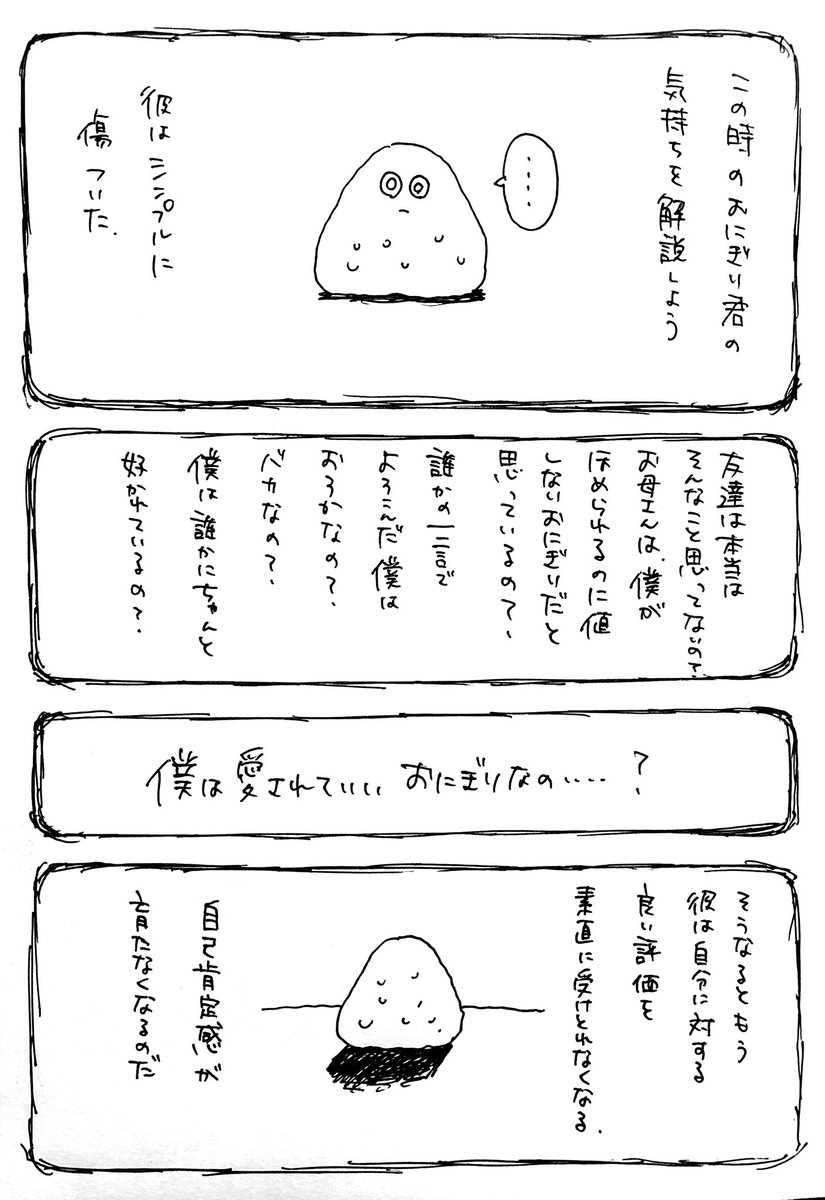 この時のおにぎり君の
気持ちを解説しよう
‥‥
彼はシンプルに
傷ついた.
友達は本当は
そんなこと思ってないの?
お母さんは、僕が
ほめられるのに値
しないおにぎりだと
思っているの?
誰かの一言で
よろこんだ僕は
おろかなの?
バカなの?
僕は誰かにちゃんと
好かれているの?
僕は愛されていい おにぎりなの‥‥?
そうなるともう
彼は自分に対する
良い評価を
素直に受けとれなくなる.
自己肯定感が
育たなくなるのだ